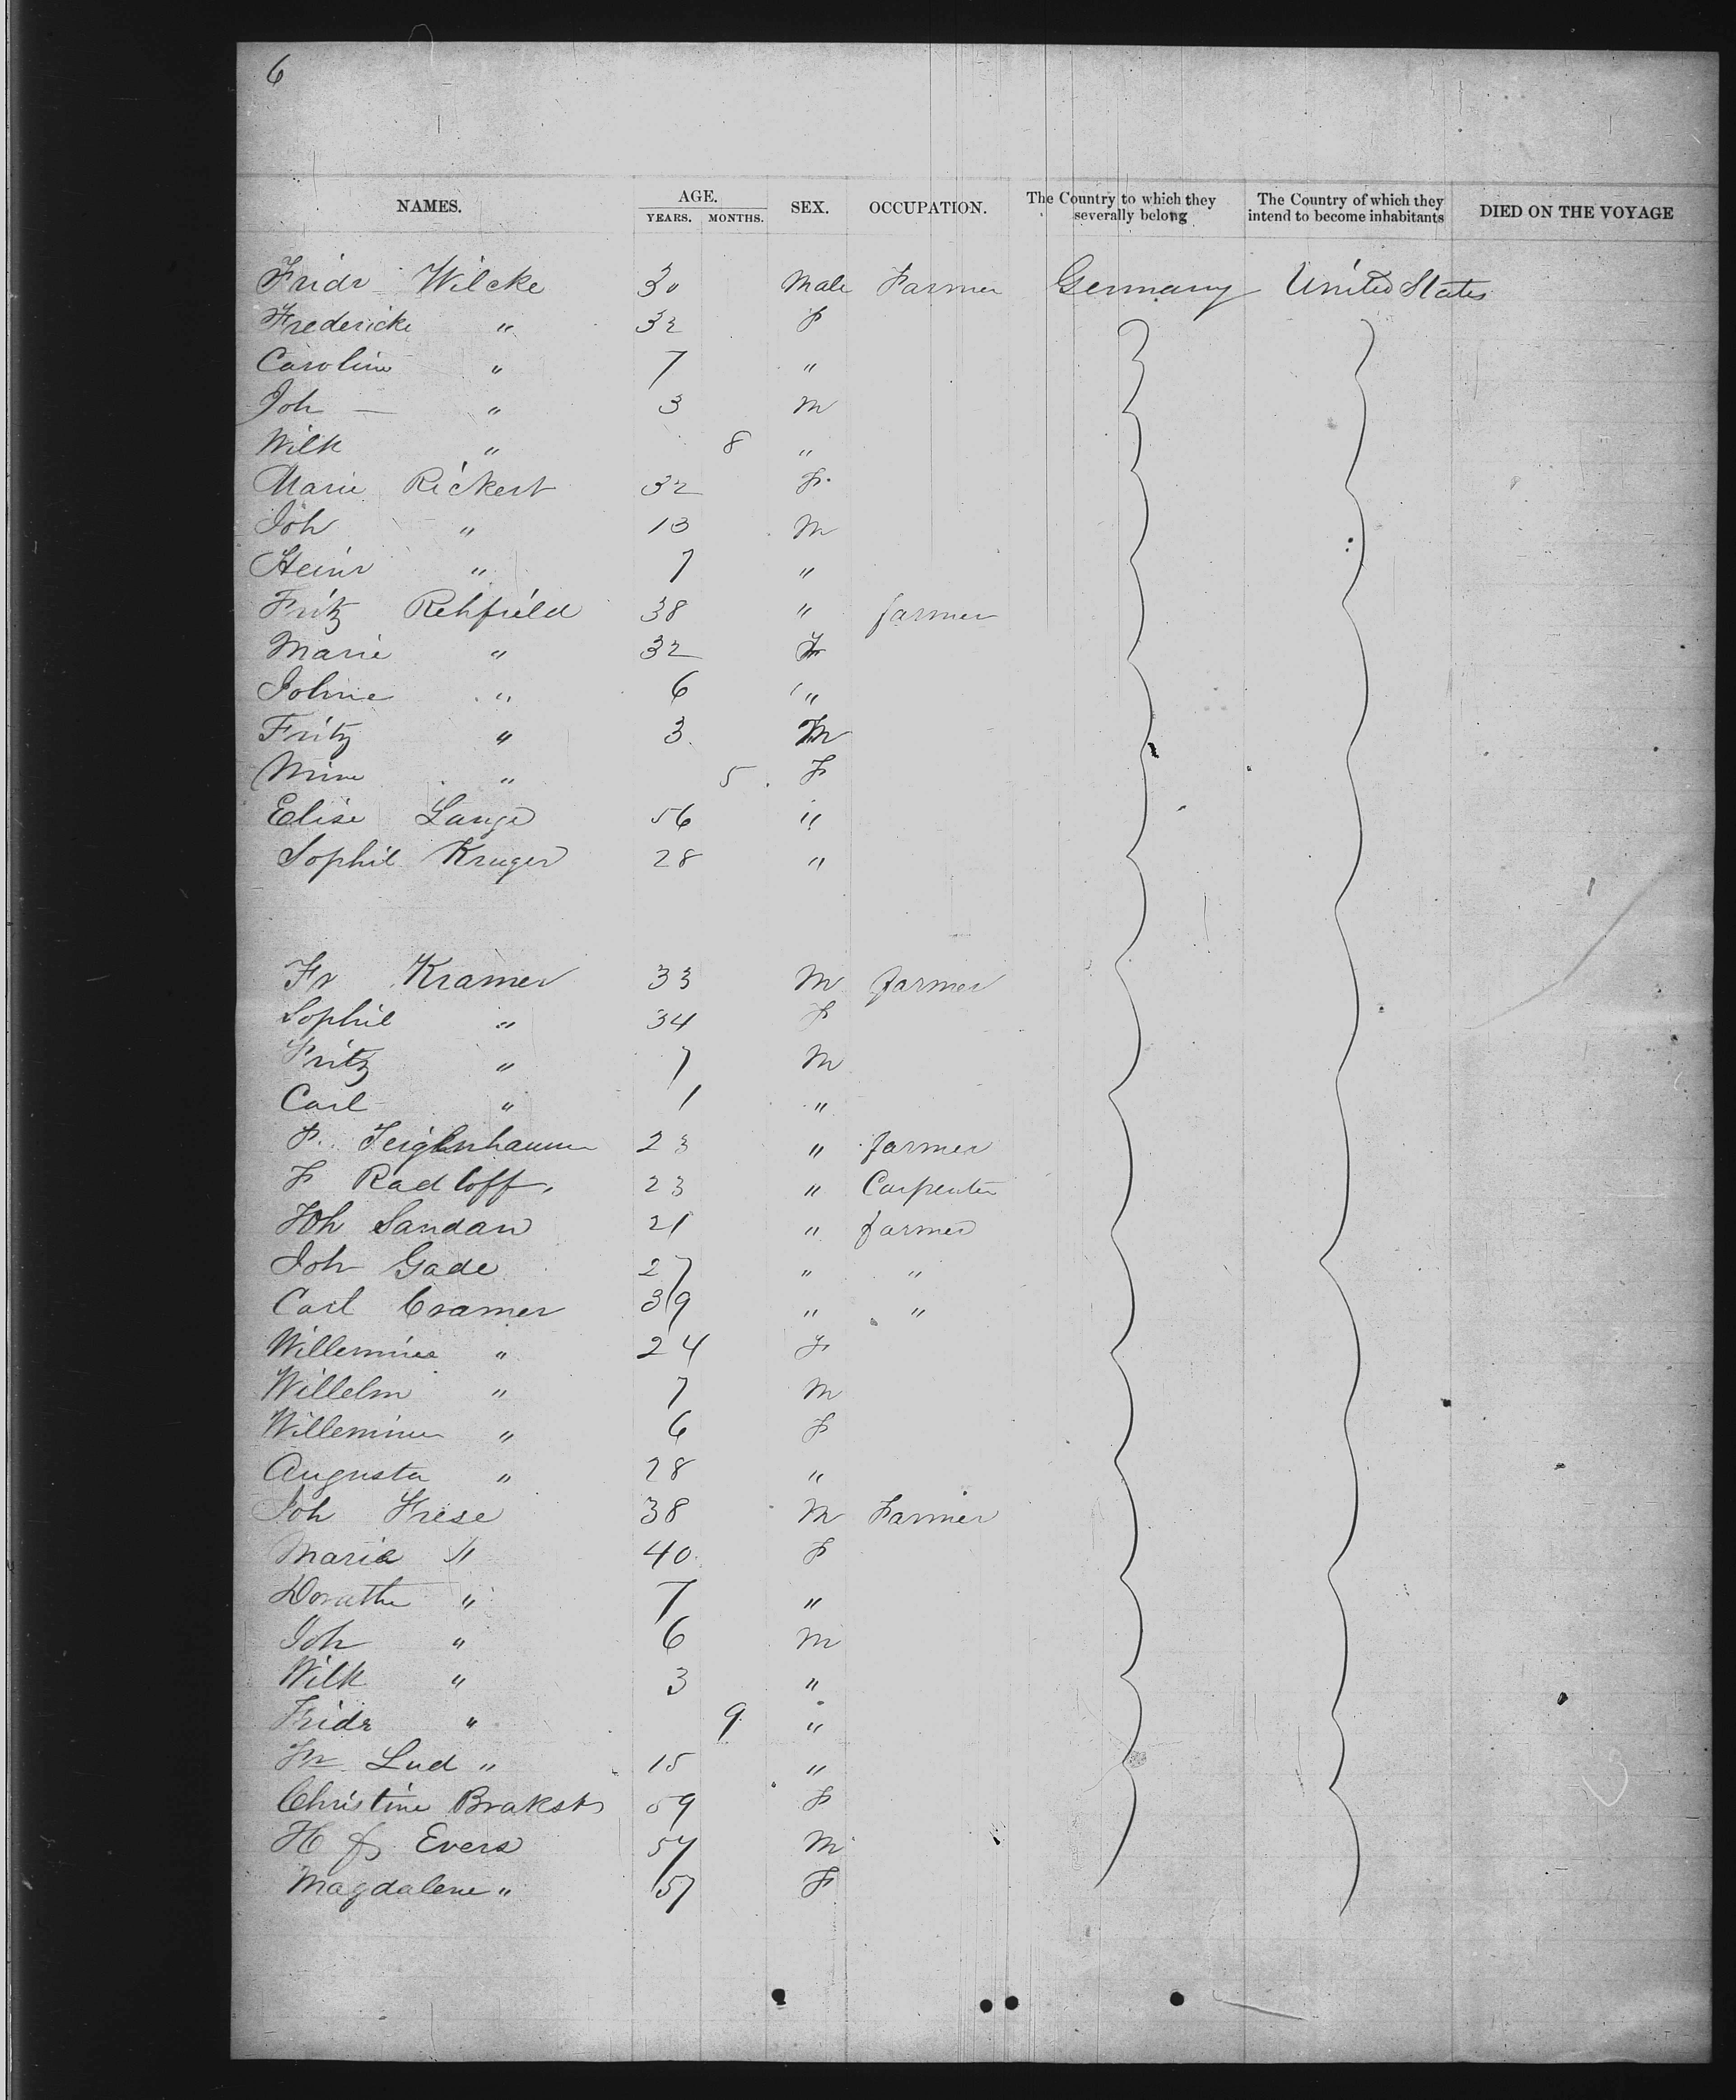 6
NAMES. AGE. YEARS. MONTHS. SEX. OCCUPATION. The Country to which they severally belong The Country of which they intend to become inhabitants DIED ON THE VOYAGE
Fridr Wilcke 30 Male Farmer Germany United States
Fredericke " 32 F
Caroline " 7 "
Joh — " 3 M
Wilh " 8 "
Marie Rickert 32 F.
Joh " 13 M
Heinr " 7 "
Fritz Rehfield 38 " farmer
Marie " 32 F
Johne " 6 "
Fritz " 3 M
Mine " 5 F
Elise Lange 56 "
Sophie Kruger 28 "
Fr Kramer 33 M farmer
Sophie " 34 F
Fritz " 7 M
Carl " 1 "
F. 23 " farmer
F Radloff 23 " Carpenter
Joh Sandan 21 " farmer
Joh Gade 27 " "
Carl Cramer 39 " "
Willermine " 24 F
Willelm " 7 M
Willemine " 6 F
Augusta " 28 "
Joh Friese 38 M Farmer
Maria " 40 F
Dorathe " 7 "
Joh " 6 M
Wilh " 3 "
Fridr " 9 "
Fr Lud " 15 "
Christine 59 F
H Evers 54 M
Magdalene " 57 F